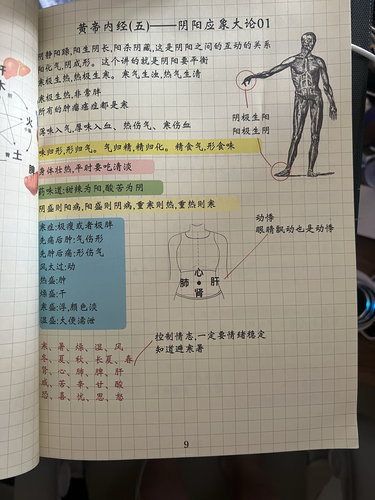 黄帝内经(五)——阴阳应象大论01
阴静阳躁,阳生阴长,阳杀阴藏,这是阴阳之间的互动的关系
阳化气,阴成形。这个讲的就是阴阳要平衡
寒极生热,热极生寒。寒气生浊,热气生清
寒极生热,非常胖
所有的肿瘤癌症都是寒
薄味入气,厚味入血、热伤气、寒伤血
味归形,形归气。气归精,精归化。精食气,形食味
身体壮热,平时要吃清淡
药味道:甜辣为阳,酸苦为阴
阴盛则阳病,阳盛则阴病,重寒则热,重热则寒
阴极生阳
阳极生阴
寒症:极瘦或者极胖
先痛后肿:气伤形
先肿后痛:形伤气
风太过:动
热盛:肿
燥盛:干
寒盛:浮,颜色淡
湿盛:大便溏泄
心
肺
肝
肾
动悸
眼睛飘动也是动悸
寒、暑、燥、湿、风
冬、夏、秋、长夏、春
肾、心、肺、脾、肝
咸、苦、辛、甘、酸
恐、喜、忧、思、怒
控制情志,一定要情绪稳定
知道避寒暑
木
火
土
脾
9